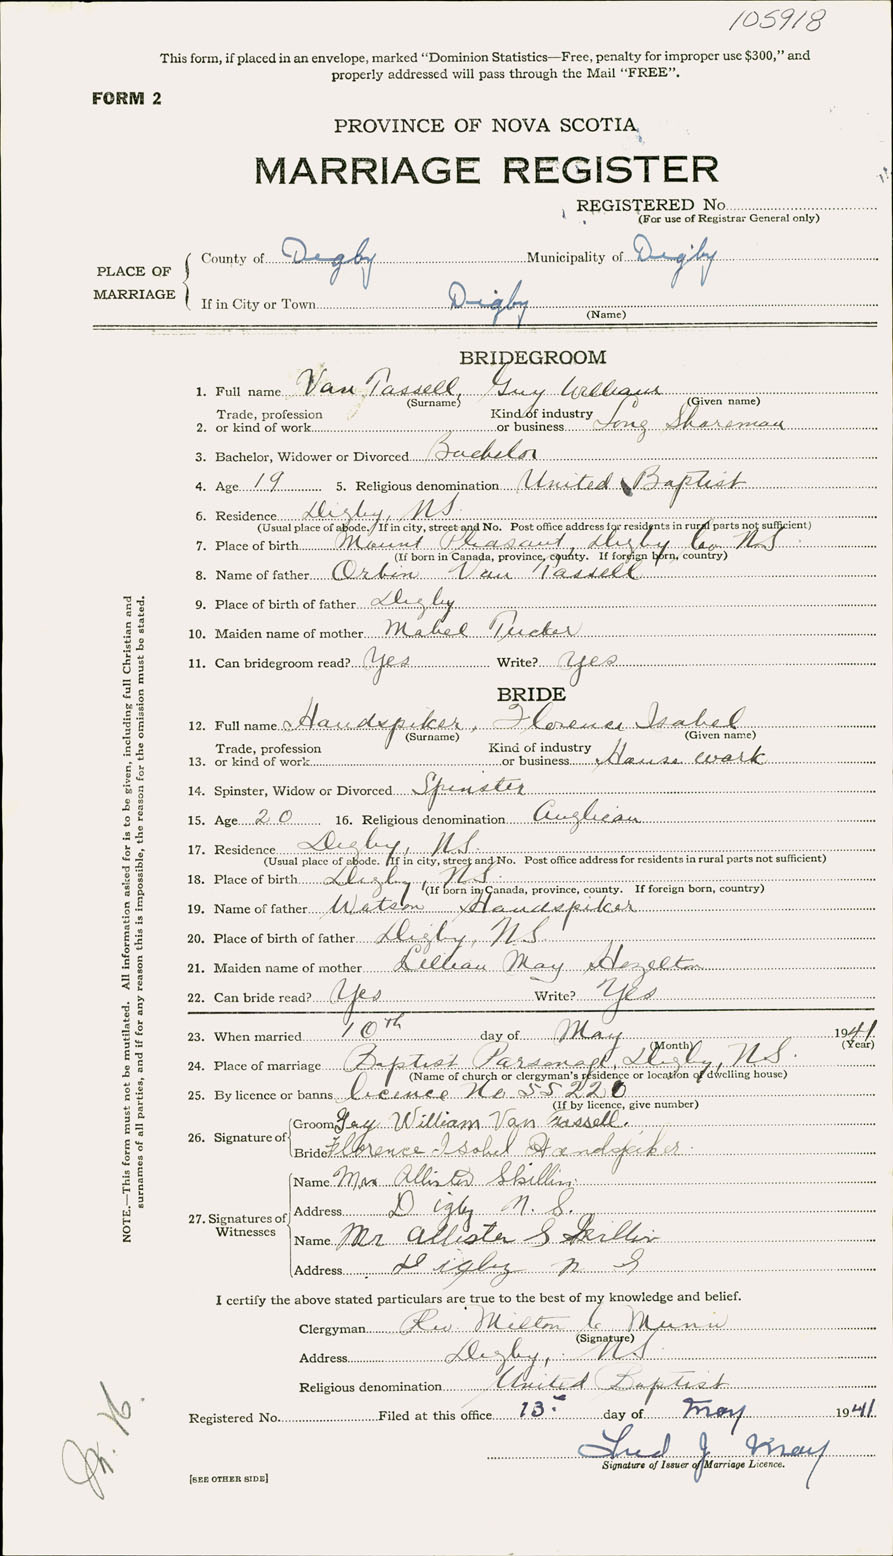 105918
This form, if placed in an envelope, marked “Dominion Statistics—Free, penalty for improper use $300,” and
properly addressed will pass through the Mail “FREE”.
FORM 2
PROVINCE OF NOVA SCOTIA
MARRIAGE REGISTER
REGISTERED No.
(For use of Registrar General only)
PLACE OF MARRIAGE
County of Digby Municipality of Digby
If in City or Town Digby
(Name)
BRIDEGROOM
1. Full name Van Tassell, Guy William
(Surname) (Given name)
2. Trade, profession or kind of work Kind of industry or business Long Shoreman
3. Bachelor, Widower or Divorced Bachelor
4. Age 19 5. Religious denomination United Baptist
6. Residence Digby, NS.
(Usual place of abode. If in city, street and No. Post office address for residents in rural parts not sufficient)
7. Place of birth Mount Pleasant, Digby Co NS.
(If born in Canada, province, county. If foreign born, country)
8. Name of father Orbin Van Tassell
9. Place of birth of father Digby
10. Maiden name of mother Mabel Tucker
11. Can bridegroom read? Yes Write? Yes
BRIDE
12. Full name Handspiker, Florence Isabel
(Surname) (Given name)
13. Trade, profession or kind of work Kind of industry or business House work
14. Spinster, Widow or Divorced Spinster
15. Age 20 16. Religious denomination Anglican
17. Residence Digby, NS.
(Usual place of abode. If in city, street and No. Post office address for residents in rural parts not sufficient)
18. Place of birth Digby, NS.
(If born in Canada, province, county. If foreign born, country)
19. Name of father Watson Handspiker
20. Place of birth of father Digby, NS
21. Maiden name of mother Lillian May Hazelton
22. Can bride read? Yes Write? Yes
23. When married 10th day of May 1941
(Month) (Year)
24. Place of marriage Baptist Parsonage, Digby, NS.
(Name of church or clergyman's residence or location of dwelling house)
25. By licence or banns licence No 55220
(If by licence, give number)
26. Signature of
Groom Guy William Van Tassell.
Bride Florence Isobel Handspiker.
27. Signatures of Witnesses
Name Mrs Allister Skillin
Address Digby N. S.
Name Mr Allister S Skillin
Address Digby N S
I certify the above stated particulars are true to the best of my knowledge and belief.
Clergyman Rev. Milton C Munn
(Signature)
Address Digby, NS.
Religious denomination United Baptist
Registered No. Filed at this office 13 day of May 1941
Fred J May
Signature of Issuer of Marriage Licence.
[SEE OTHER SIDE]
NOTE.—This form must not be mutilated. All information asked for is to be given, including full Christian and
surnames of all parties, and if for any reason this is impossible, the reason for the omission must be stated.